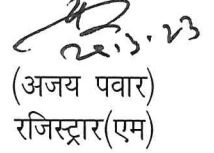 20.3.23
(अजय पवार)
रजिस्ट्रार(एम)